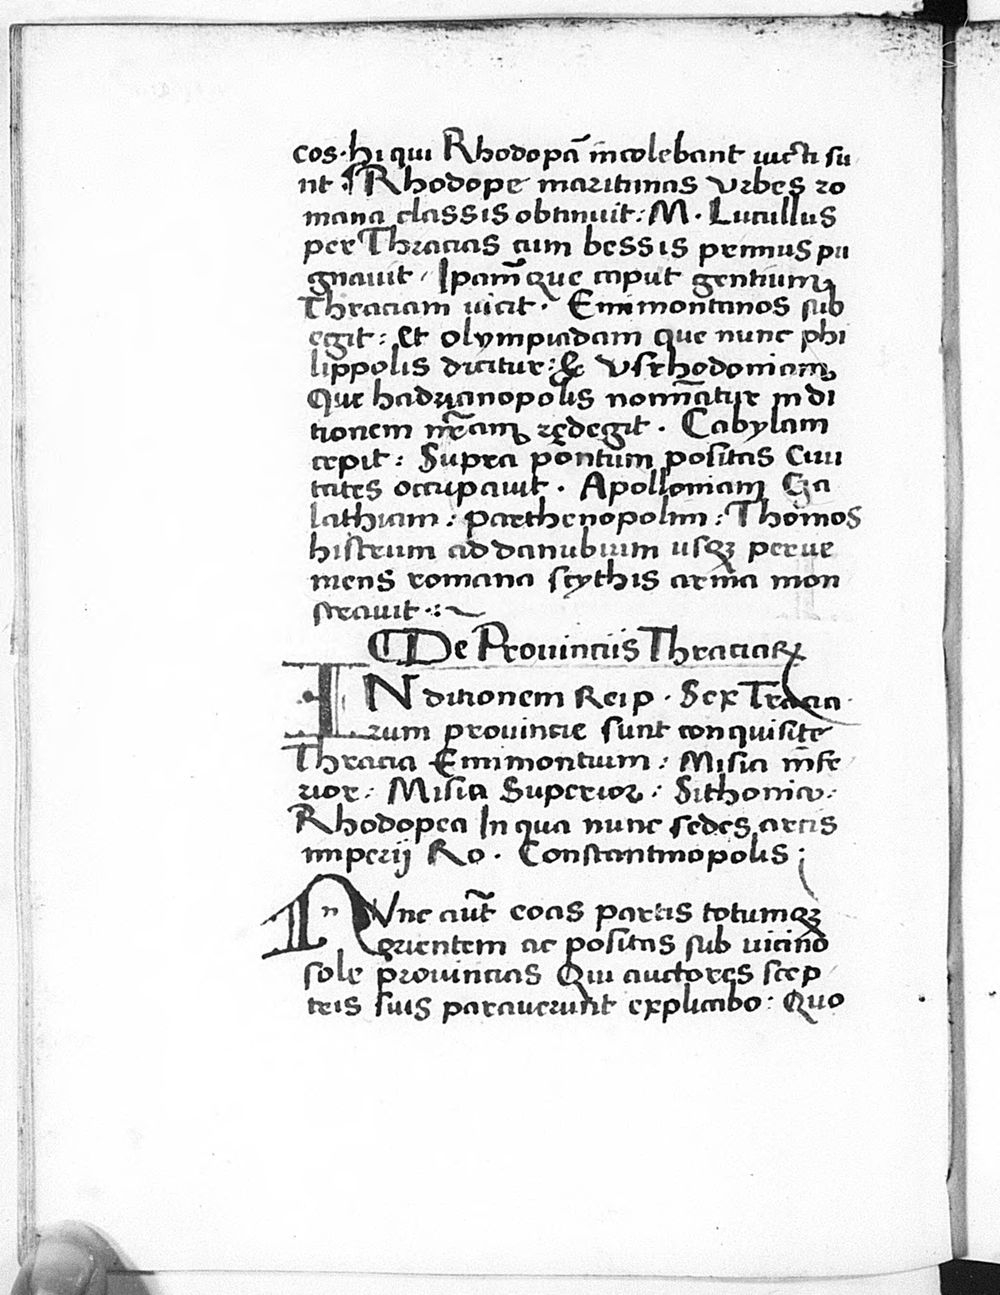 cos· hi qui Rhodopā incolebant uicti su
nt · Rhodope maritimas vrbes ro
mana classis obtinuit: M · Lucullus
per Thracias cum bessis primus pu
gnauit · Ipam̄ que caput gentium
Thraciam uicit · Emimontanos sub
egit: et olympiadam que nunc phi
lippolis dicitur: & vsrhodoniam
Que hadrianopolis nom̄atur in di
tionem nr̄am redegit · Cabylam
cepit: Supra pontum positas Ciui
tates occupauit · Apolloniam Ga
lathiam: parthenopolim: Thomos
histrum ad danubium usqꝫ perue
niens romana scythis arma mon
strauit ·:~
De Prouinciis Thraciaꝝ
IN ditionem Reip · Sex Tracia
rum prouincie sunt conquisite
Thracia Emimontium: Misia infe
rior: Misia Superior: Sithonia:
Rhodopea In qua nunc sedes artis
imperij Ro · Constantinopolis:
Nvnc aut̄ eoas partis totumqꝫ
orientem ac positas sub uicino
sole prouincias Qui auctores scep
tris suis parauerunt explicabo: Quo